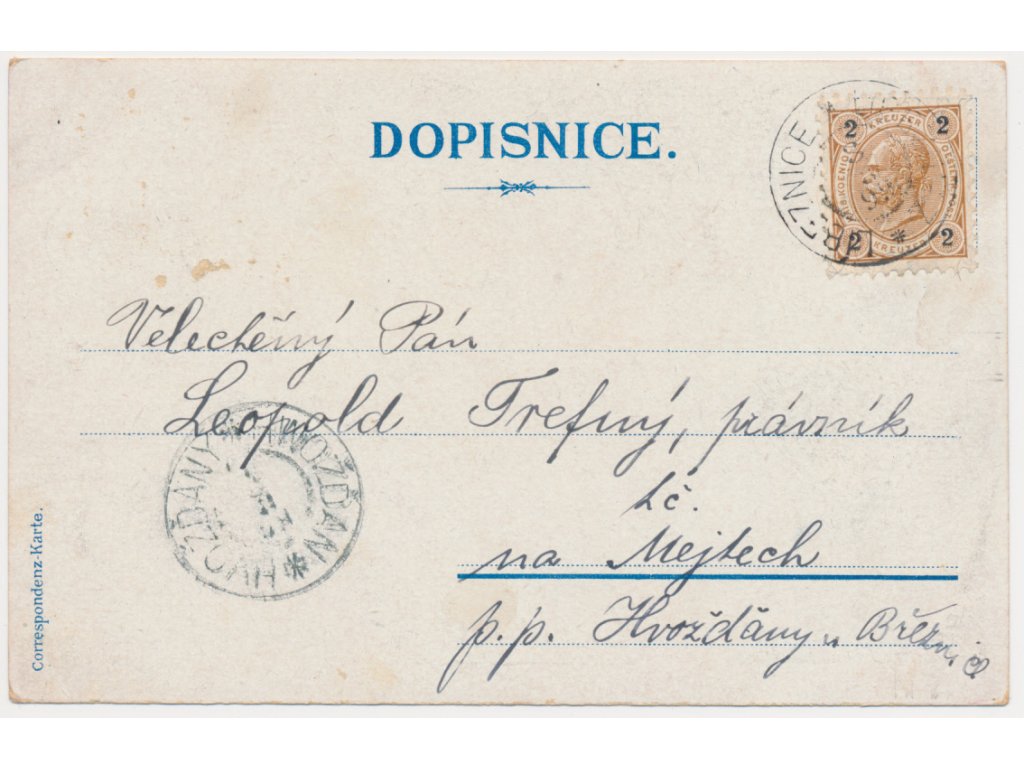 DOPISNICE.
BŘEZNICE
2 KREUZER 2
2 KREUZER 2
Velectěný Pán
Leopold Trefný, právník
t.č.
na Mejtech
p.p. Hvožďany u Březnice
HVOŽĎANY HWOŽĎAN
Correspondenz-Karte.